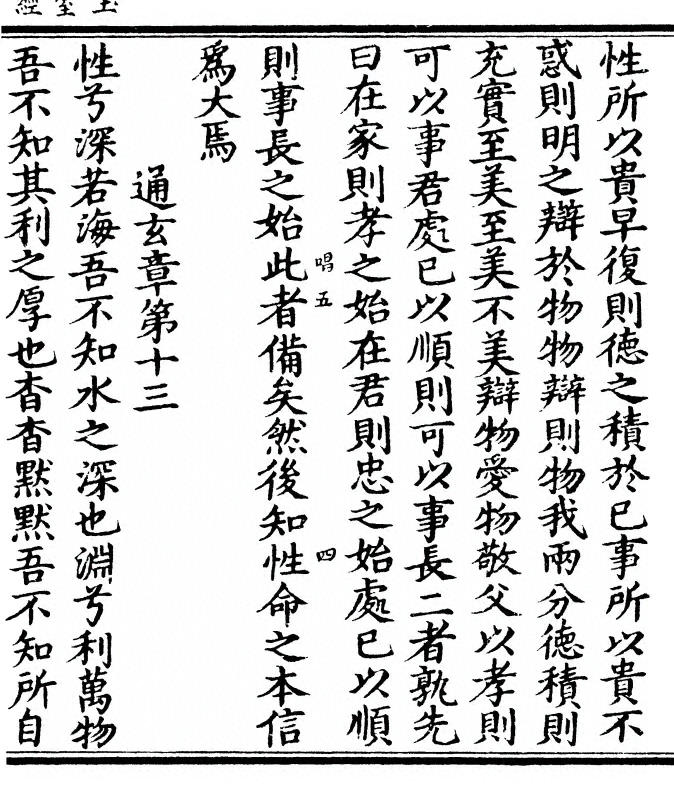 性所以貴早復則德之積於已事所以貴不
惑則明之辯於物物辯則物我兩分德積則
充實至美至美不美辯物愛物敬父以孝則
可以事君處已以順則可以事長二者孰先
曰在家則孝之始在君則忠之始處已以順
唱五
四
則事長之始此者備矣然後知性命之本信
爲大焉
通玄章第十三
性兮深若海吾不知水之深也淵兮利萬物
吾不知其利之厚也杳杳默默吾不知所自